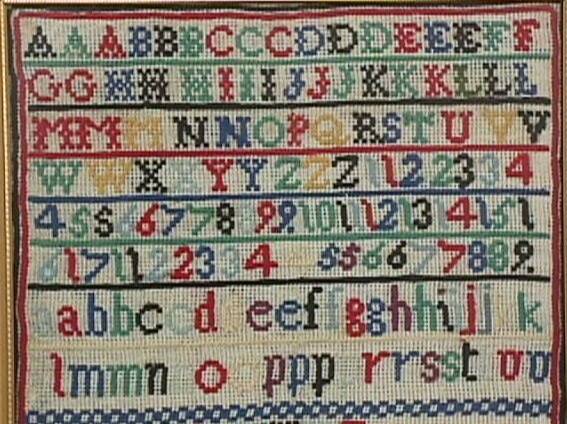 AAABBBCCCDDDEEEFFF
GGHHHIIIJJJKKKLLL
MMMNNNOPQRSTUVV
WWXXYYZZZ11223 34
455667788991011121314151
6171122334 4 556677889.
aabbccddeeeffgghhijjkk
lmmn o pppp rrsst uu